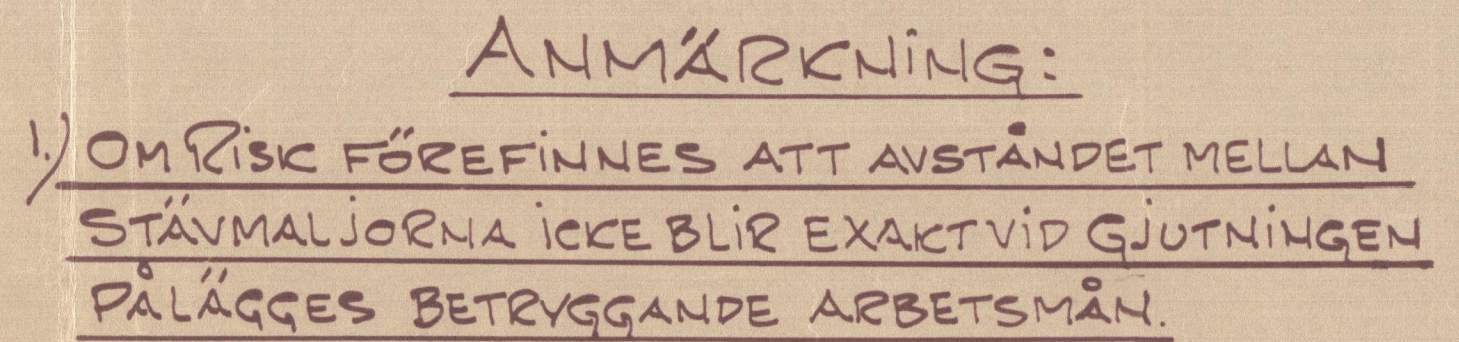 ANMÄRKNING:
1.) OM RISK FÖREFINNES ATT AVSTÅNDET MELLAN
STÄVMALJORNA ICKE BLIR EXAKT VID GJUTNINGEN
PÅLÄGGES BETRYGGANDE ARBETSMÅN.